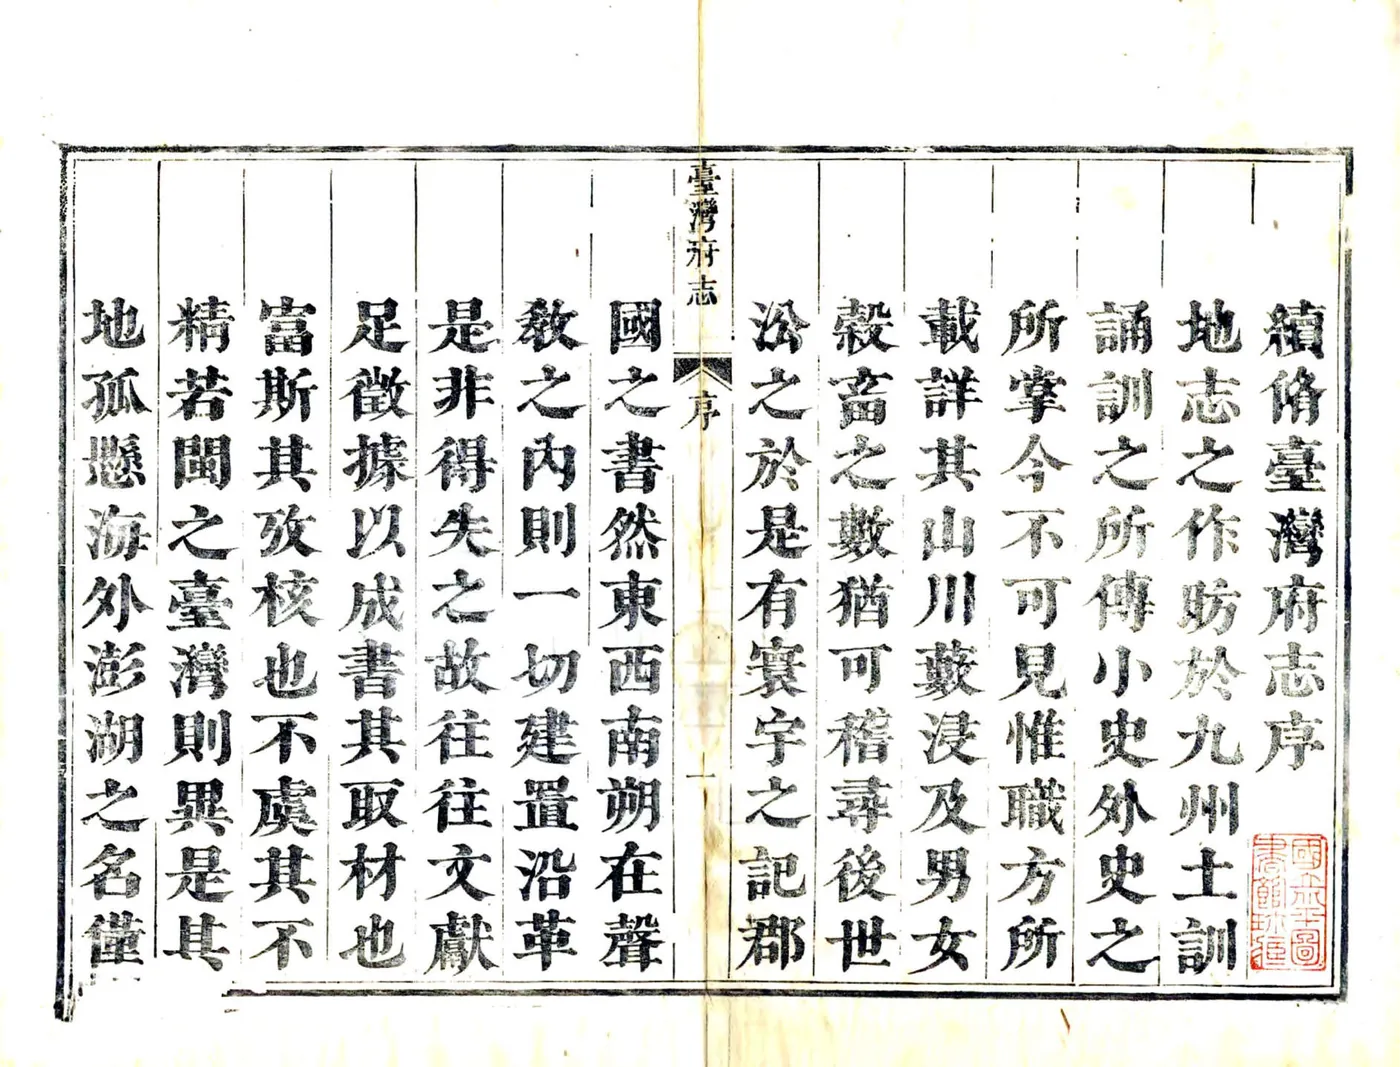 續脩臺灣府志序
地志之作昉於九州土訓
誦訓之所傳小史外史之
所掌今不可見惟職方所
載詳其山川藪浸及男女
穀畜之數猶可稽尋後世
㳂之於是有寰宇之記郡
臺灣府志
序
一
國之書然東西南朔在聲
敎之內則一切建置沿革
是非得失之故往往文獻
足徵據以成書其取材也
富斯其攷核也不虞其不
精若閩之臺灣則異是其
地孤懸海外澎湖之名僅